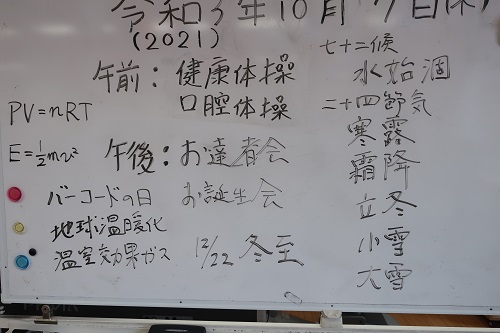 令和3年10月7日(木)
(2021)
午前：健康体操
口腔体操
PV=nRT
E=½mv²
午後：お達者会
バーコードの日
お誕生会
地球温暖化
温室効果ガス
12/22 冬至
七十二候
水始涸
二十四節気
寒露
霜降
立冬
小雪
大雪